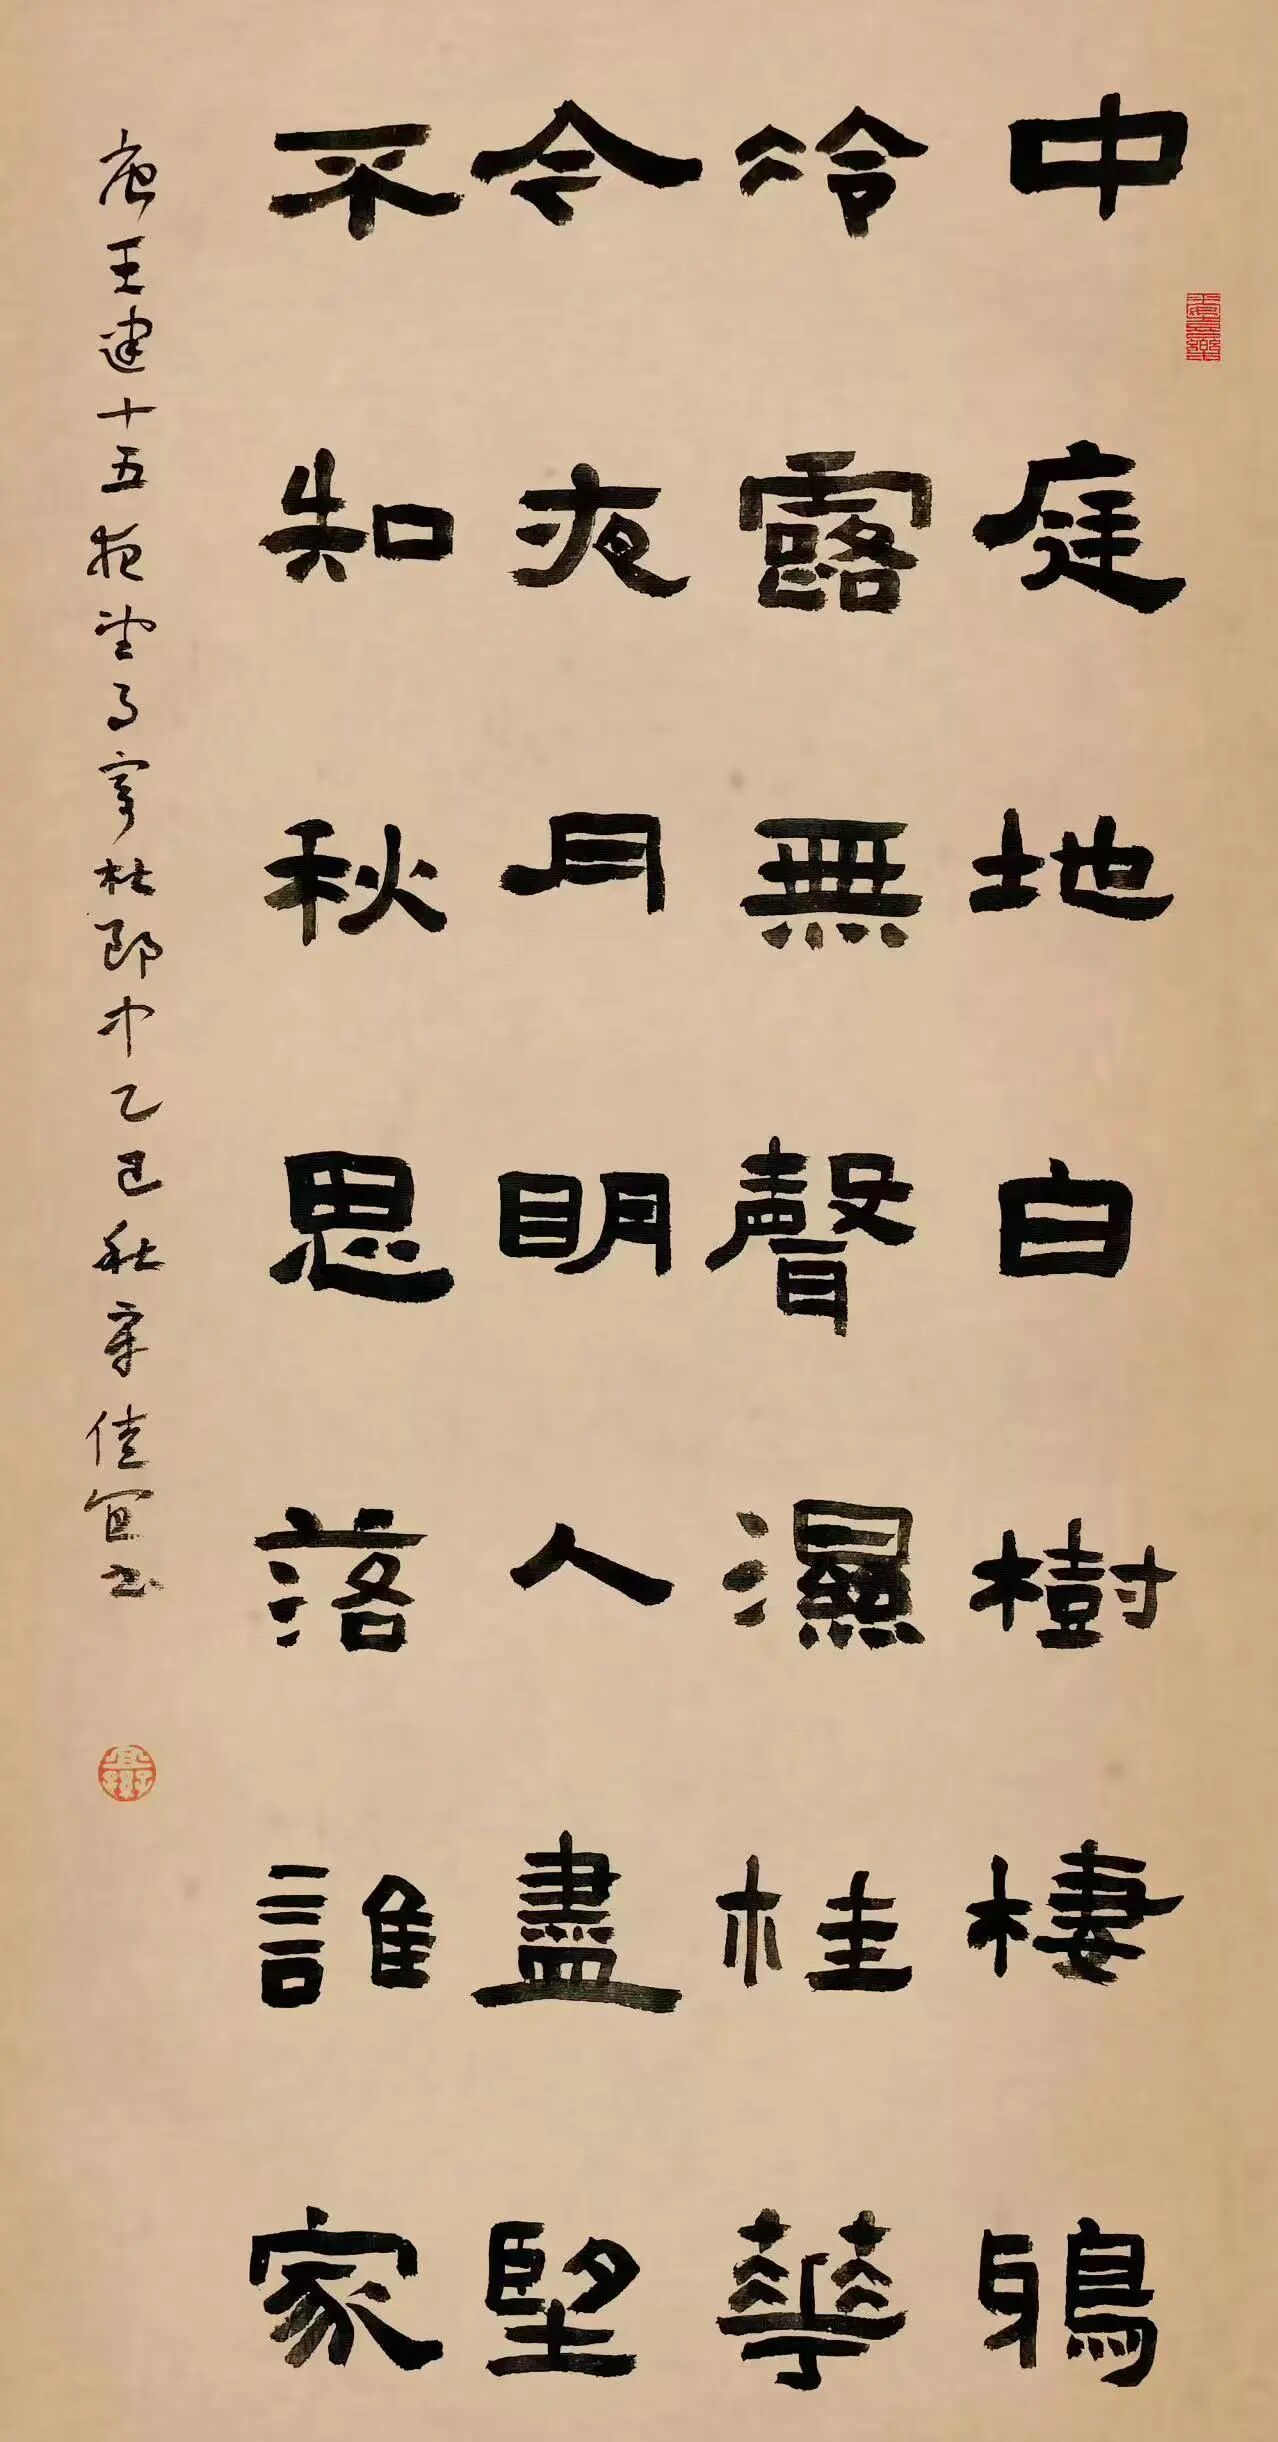 中庭地白樹棲鵶
冷露無聲濕桂華
今夜月明人盡望
不知秋思落誰家
唐王建十五夜望月寄杜郎中乙巳秋宋佳宜書